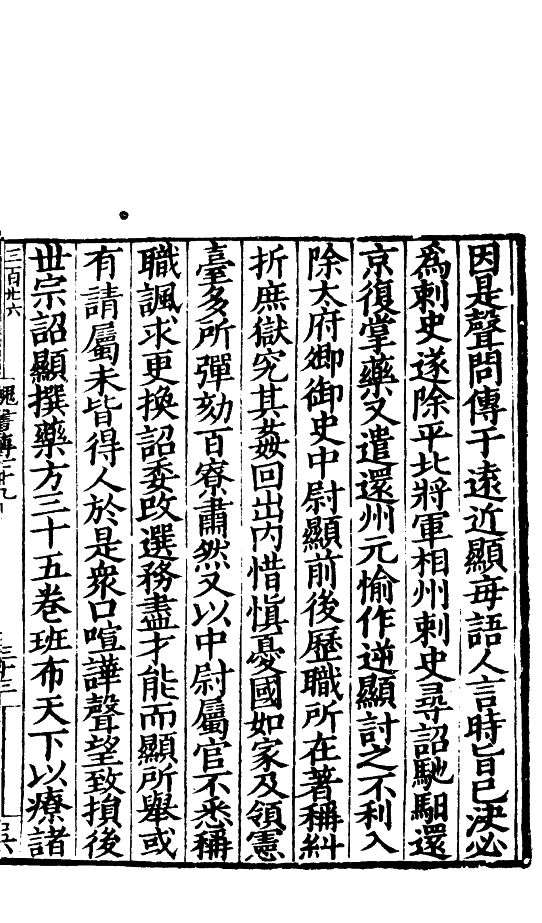 因是聲問傳于遠近顯每語人言時旨已決必
爲刺史遂除平北將軍相州刺史尋詔馳馹還
京復掌藥又遣還州元愉作逆顯討之不利入
除太府卿御史中尉顯前後歷職所在著稱糾
折庶獄究其姦回出內惜愼憂國如家及領憲
臺多所彈劾百寮肅然又以中尉屬官不悉稱
職諷求更換詔委改選務盡才能而顯所舉或
有請屬未皆得人於是衆口喧譁聲望致損後
世宗詔顯撰藥方三十五卷班布天下以療諸
三百廿六